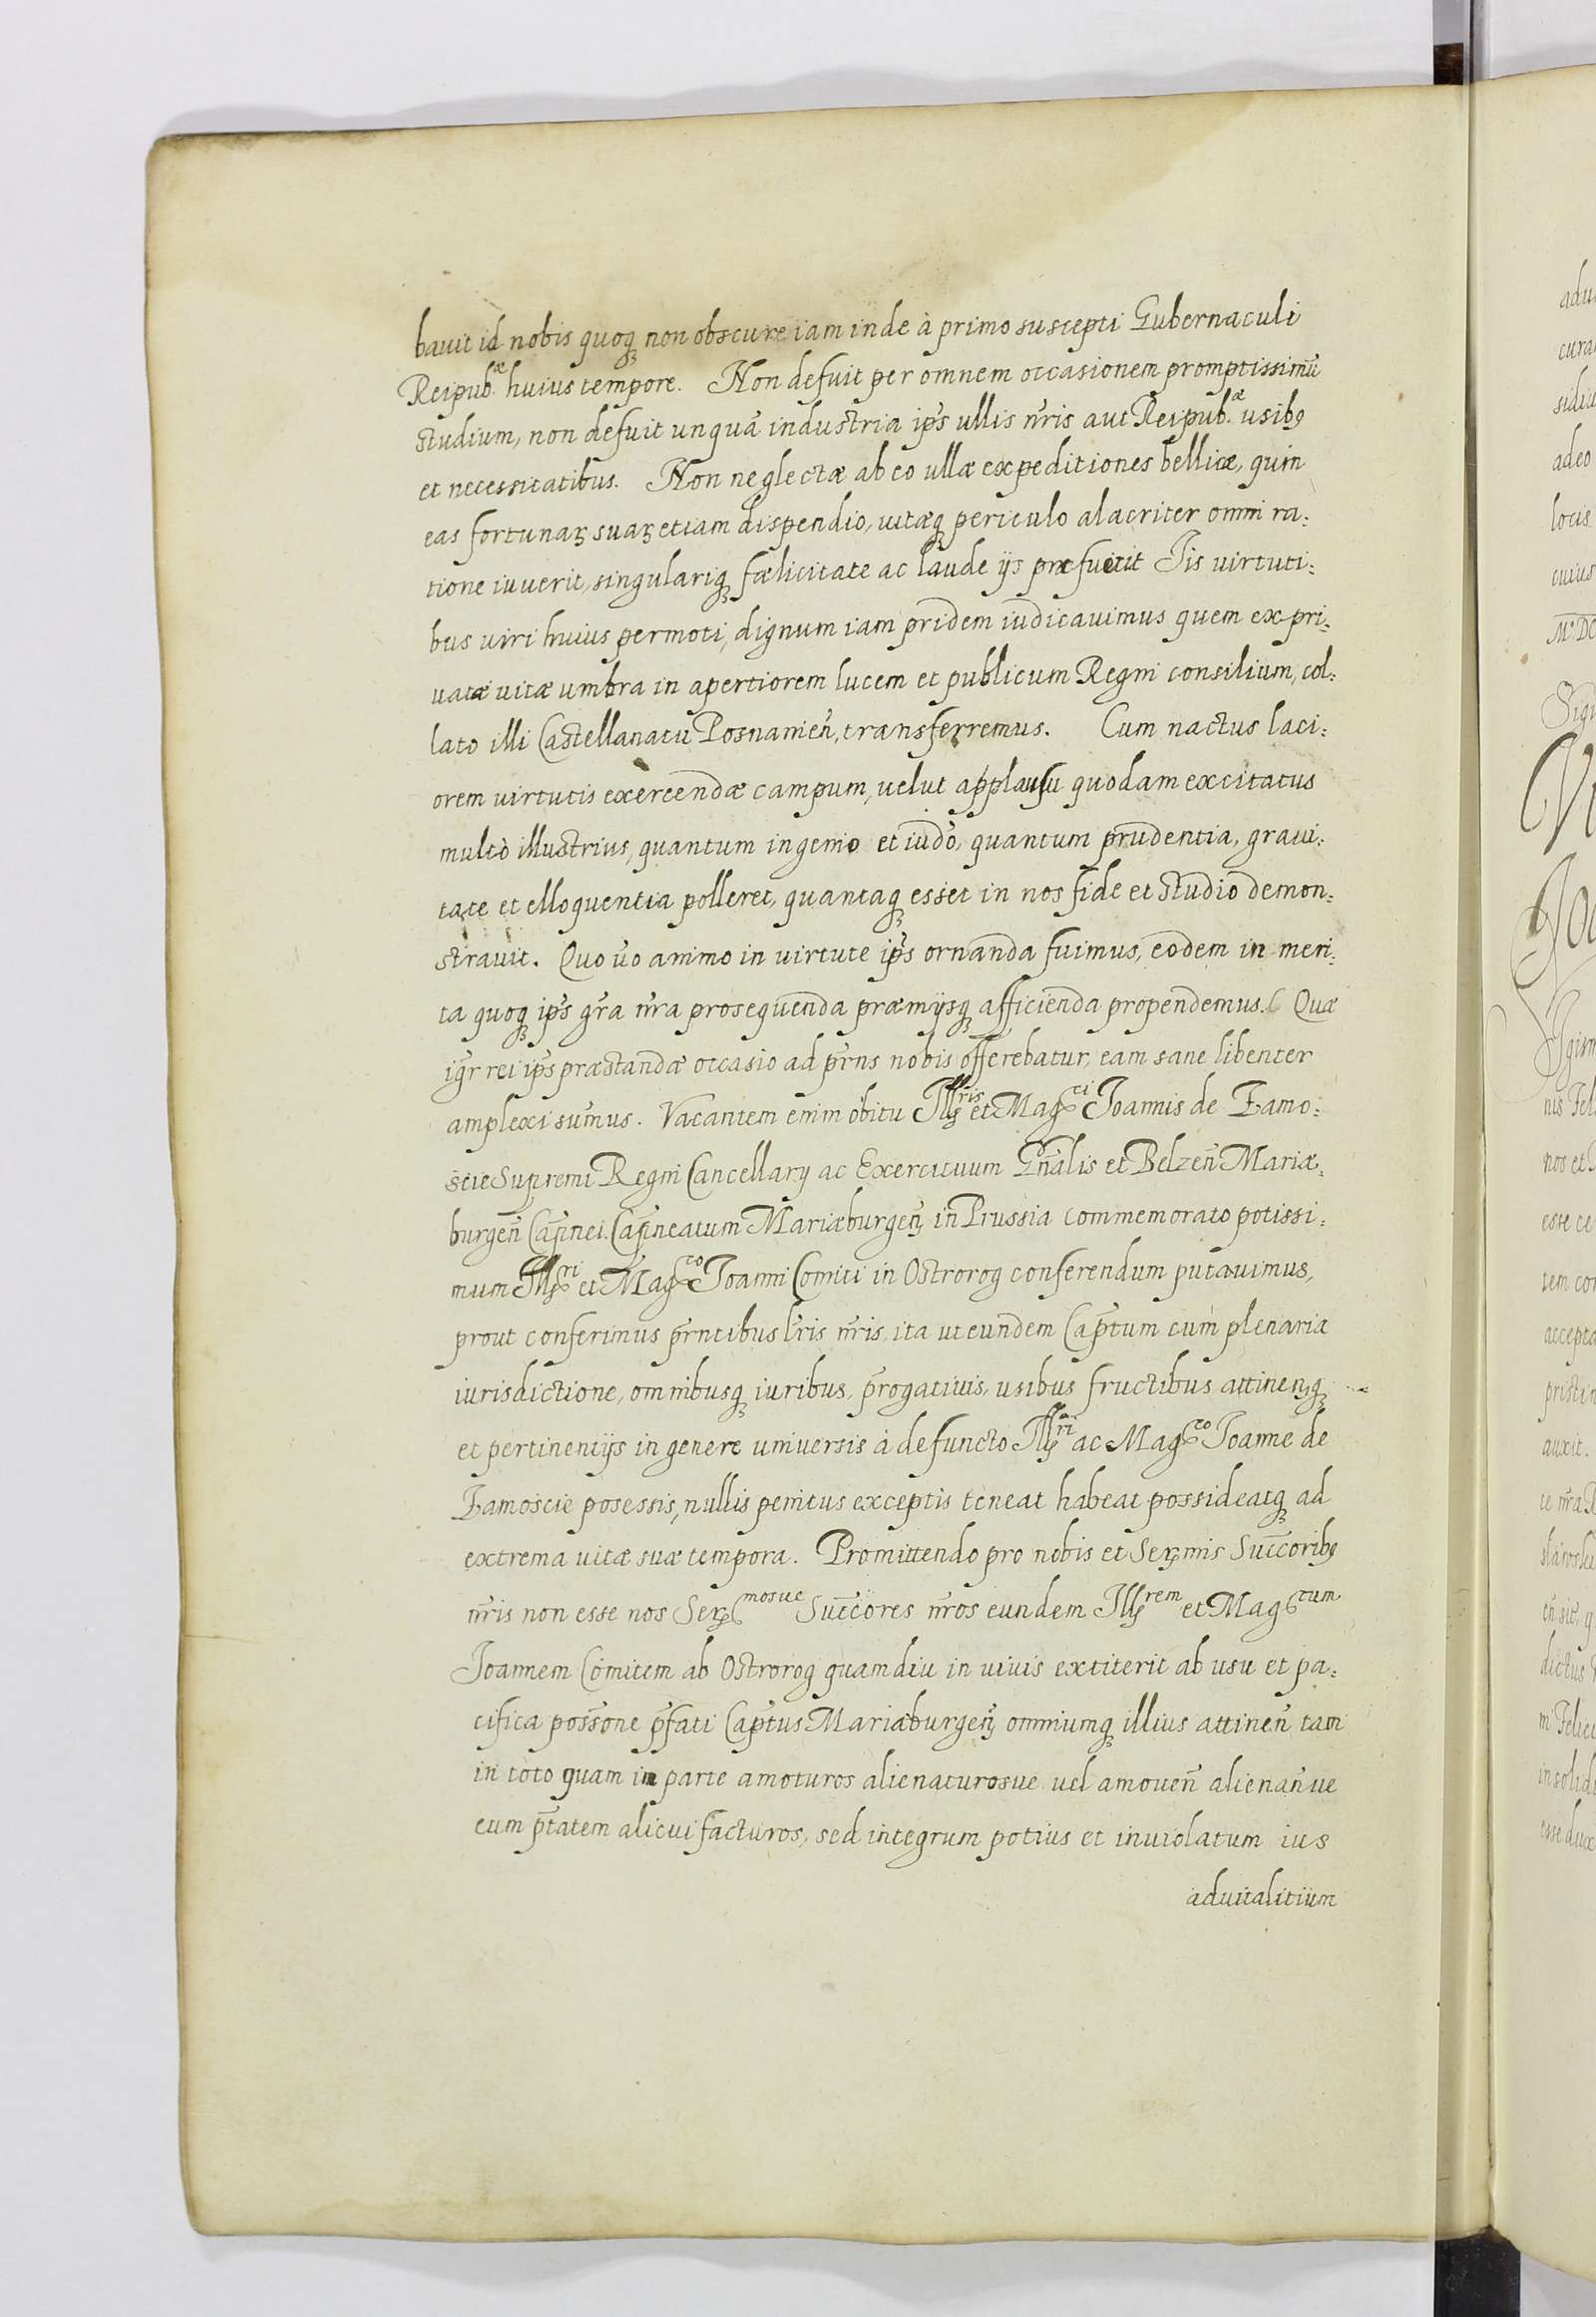 bavit id nobis quoqȝ non obscure iam inde à primo suscepti Gubernaculi
Reipub.æ huius tempore. Non defuit per omnem occasionem promptissimū
studium, non defuit unquā industria ip̄s ullis n̄ris aut Reipub.æ usibꝯ
et necessitatibus. Non neglectæ ab eo ullæ expeditiones bellicæ, quin
eas fortunaꝝ suaꝝ etiam dispendio, vitæqȝ periculo alacriter omni ra:
tione iuverit, singulariqȝ fœlicitate ac laude ijs præfuerit Iis virtuti:
bus viri huius permoti, dignum iam pridem iudicavimus quem ex pri:
vatæ vitæ umbra in apertiorem lucem et publicum Regni consilium, col:
lato illi Castellanatū Posnanien̄, transferremus. Cum nactus laci:
orem virtutis exercendæ campum, velut applausu quodam excitatus
multò illustrius, quantum ingenio et iud̄o, quantum prudentia, gravi:
tate et elloquentia polleret, quantaqȝ esset in nos fide et studio demon:
stravit. Quo v̄o animo in virtute ip̄s ornanda fuimus, eodem in meri:
ta quoqȝ ip̄s gr̄a n̄ra prosequenda præmijsqȝ afficienda propendemus. Quæ
igr̄ rei ip̄s præstandæ occasio ad pr̄ns nobis offerebatur, eam sane libenter
amplexi sumus. Vacantem enim obitu Illris et Magci Ioannis de Zamo:
scie Supremi Regni Cancellarij ac Exercituum Gn̄alis et Belzen̄ Mariæ:
burgen̄ Cap̄inei. Cap̄ineatum Mariæburgen̄ in Prussia commemorato potissi:
mum Illri et Magco Ioanni Comiti in Ostrorog conferendum putavimus,
prout conferimus pr̄ntibus l̄ris n̄ris, ita ut eundem Cap̄tum cum plenaria
iurisdictione, omnibusqȝ iuribus, p̄rogativis, usibus fructibus attinenqȝ
et pertinentijs in genere universis à defuncto Illri ac Magco Ioanne de
Zamoscie posessis, nullis penitus exceptis teneat habeat possideatqȝ ad
extrema vitæ suæ tempora. Promittendo pro nobis et Serꝫmis Succ̄oribꝯ
n̄ris non esse nos Serꝫmosve Succ̄ores n̄ros eundem Illrem et Magcum
Ioannem Comitem ab Ostrorog quamdiu in vivis extiterit ab usu et pa:
cifica poss̄one p̄fati Cap̄tus Mariæburgen̄, omniumqȝ illius attinen̄ tam
in toto quam in parte amoturos alienaturosve vel amoven̄ alienan̄ve
eum p̄tatem alicui facturos, sed integrum potius et inviolatum ius
advitalitium